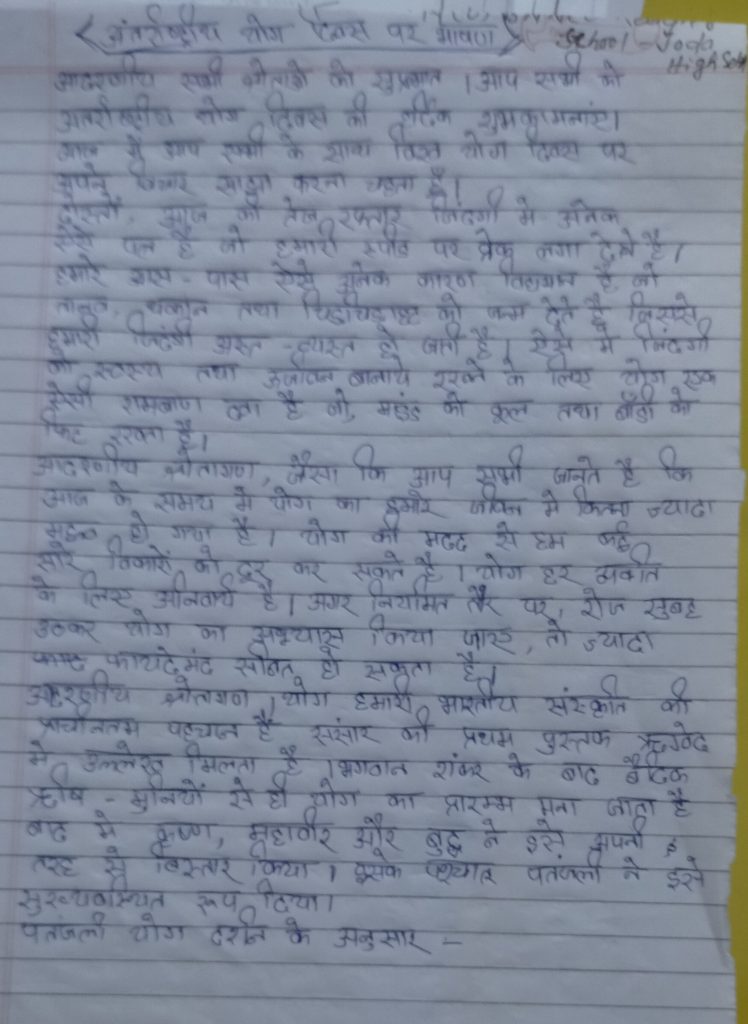 < अंतर्राष्ट्रीय योग दिवस पर भाषण >
School -
High Sch
आदरणीय सभी श्रोताओं को सुप्रभात । आप सभी को
अंतर्राष्ट्रीय योग दिवस की हार्दिक शुभकामनाएं।
आज मैं आप सभी के साथ विश्व योग दिवस पर
अपने विचार साझा करना चाहता है।
दोस्तों, आज की तेज रफ्तार जिंदगी मे अनेक
ऐसे पल है जो हमारी स्पीड पर ब्रेक लगा देते है।
हमारे आस - पास ऐसे अनेक कारण विद्यमान है जो
तनाव, थकान तथा चिड़चिड़ाहट को जन्म देते है जिससे
हमारी जिंदगी अस्त - व्यस्त हो जाती है। ऐसे मे जिंदगी
को स्वस्थ तथा ऊर्जावान बनाये रखने के लिए योग एक
ऐसी रामबाण दवा है जो, माइंड को कूल तथा बॉडी को
फिट रखता है।
आदरणीय श्रोतागण, जैसा कि आप सभी जानते है कि
आज के समय मे योग का हमारे जीवन मे कितना ज्यादा
महत्व हो गया है। योग की मदद से हम कई
सारे विकारों को दूर कर सकते है। योग हर व्यक्ति
के लिए अनिवार्य है। अगर नियमित तौर पर, रोज सुबह
उठकर योग का अभ्यास किया जाए, तो ज्यादा
फायदेमंद साबित हो सकता है।
आदरणीय श्रोतागण, योग हमारी भारतीय संस्कृति की
प्राचीनतम पहचान है संसार की प्रथम पुस्तक ऋग्वेद
मे उल्लेख मिलता है। भगवान शंकर के बाद वैदिक
ऋषि - मुनियों से ही योग का प्रारम्भ माना जाता है
बाद मे कृष्ण, महावीर और बुद्ध ने इसे अपनी
तरह से विस्तार किया। इसके पश्चात पतंजली ने इसे
सुव्यवस्थित रूप दिया।
पतंजली योग दर्शन के अनुसार -